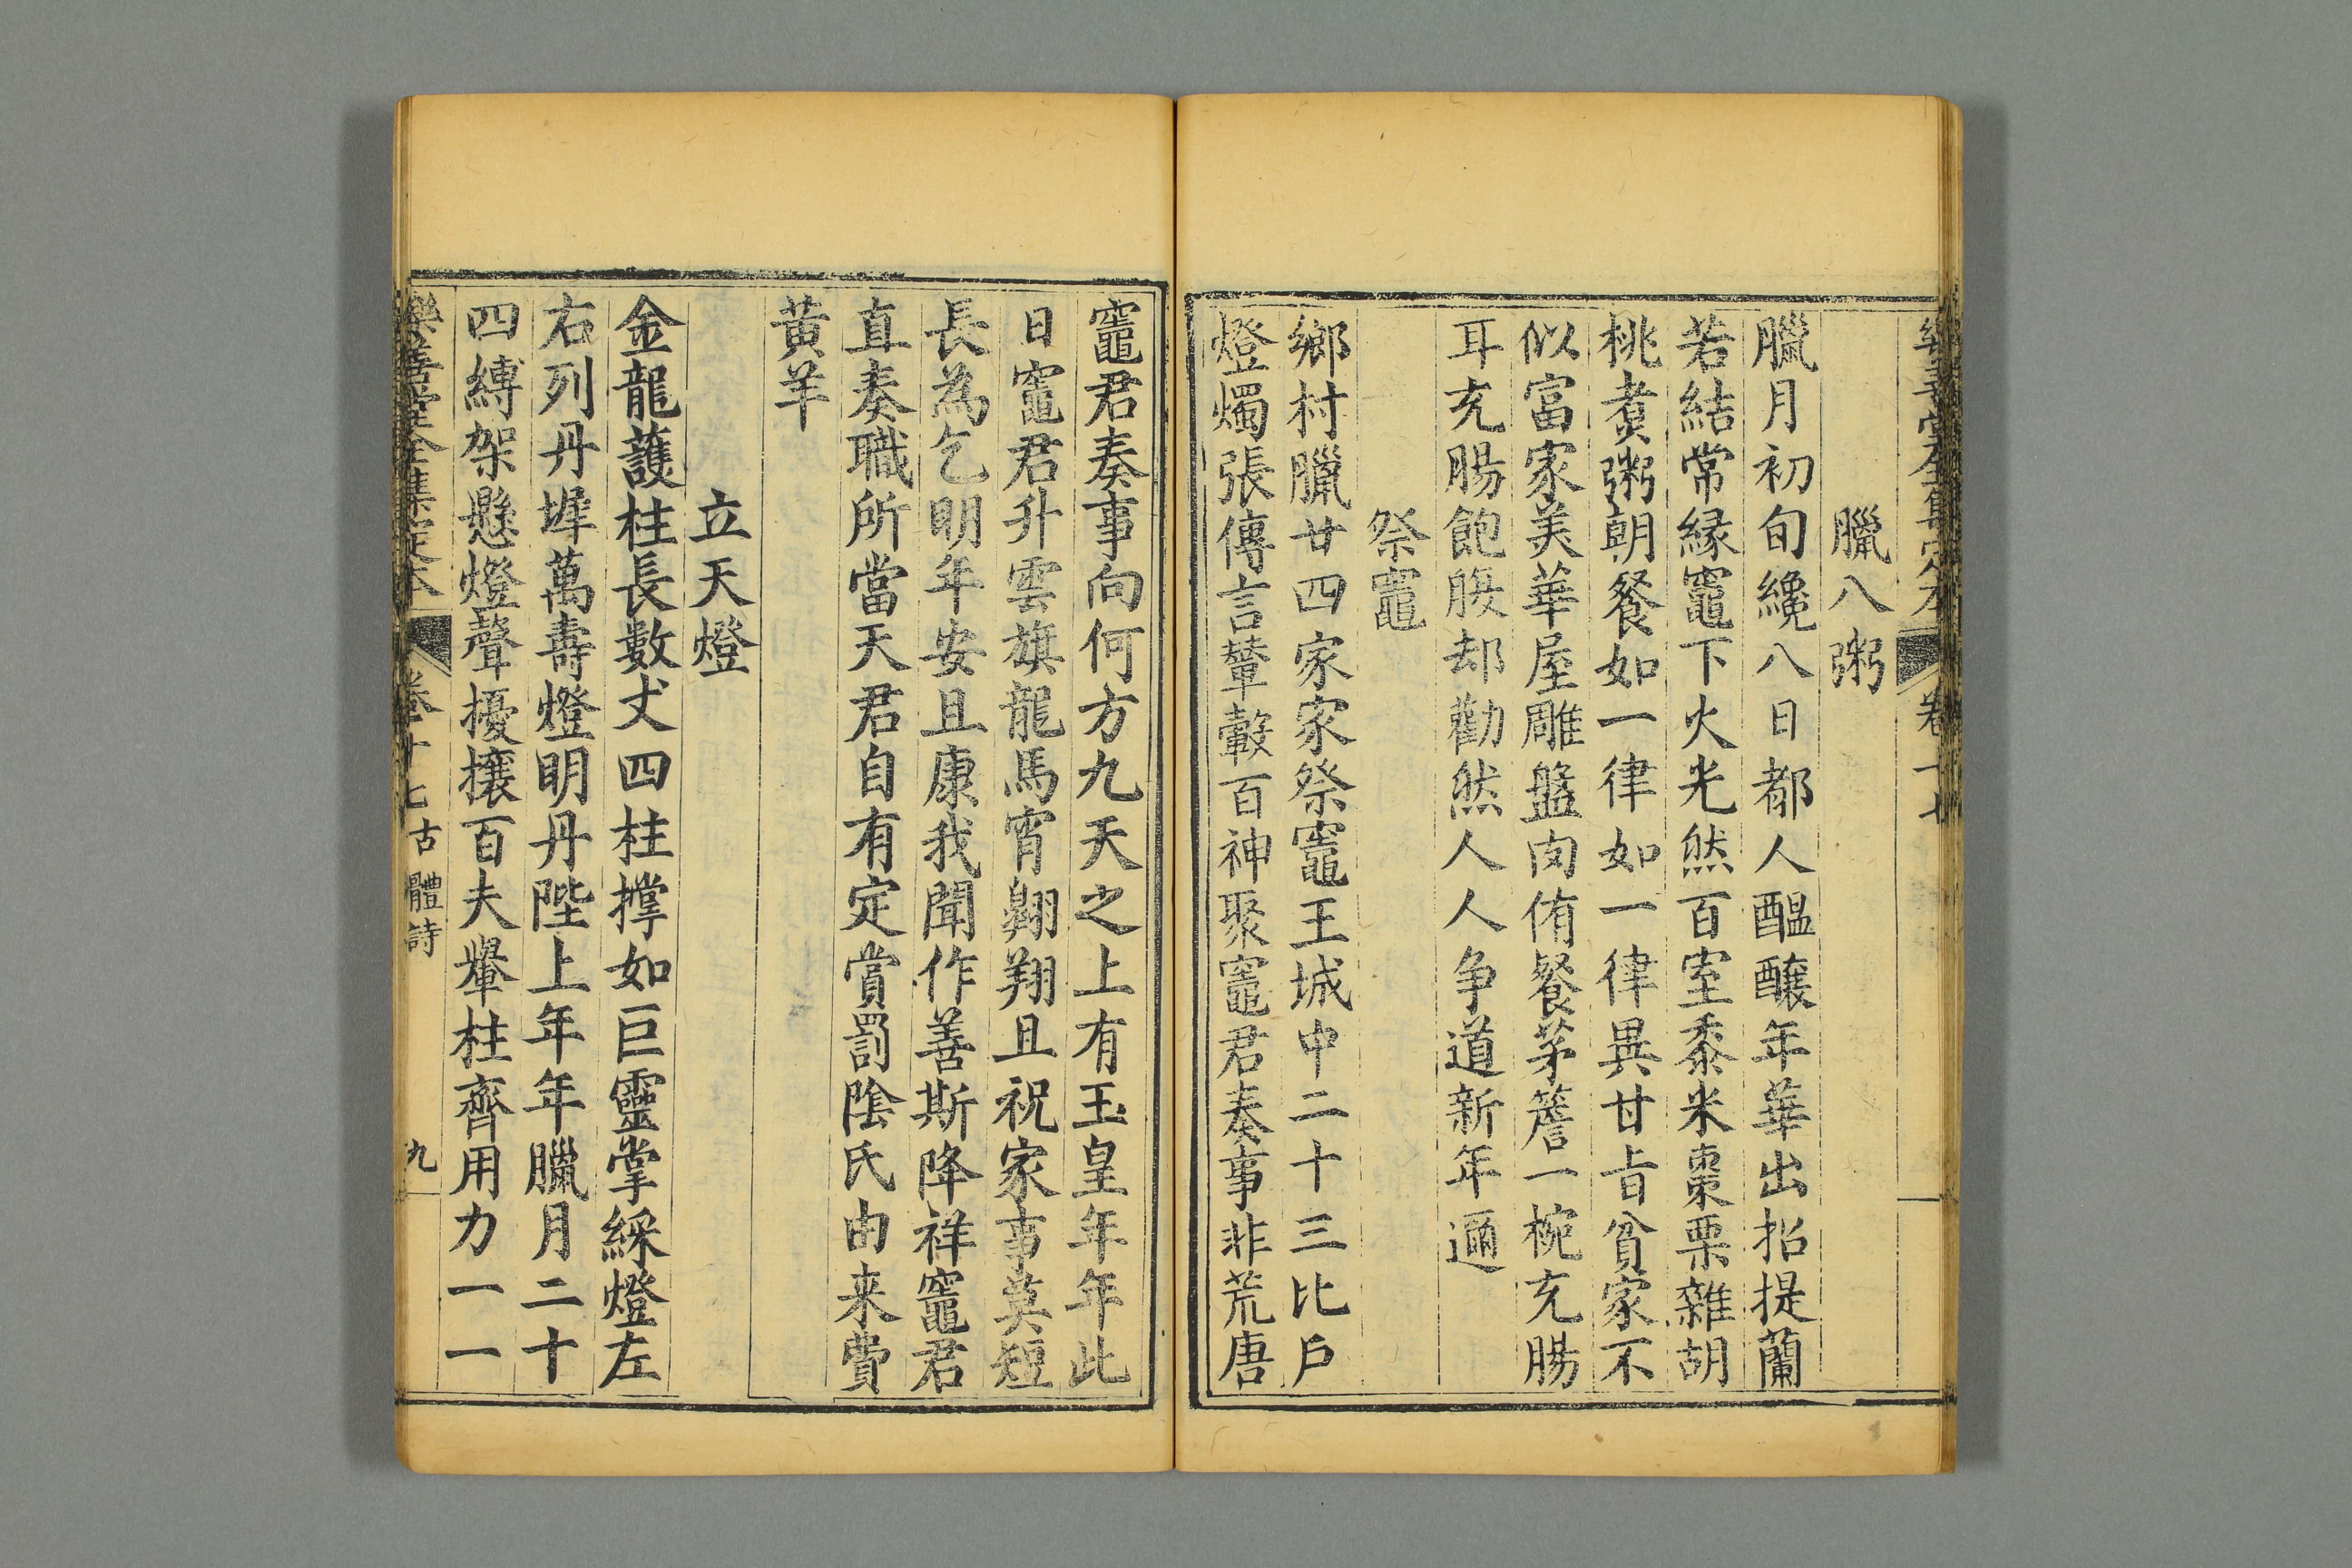 樂善堂全集定本 卷十七
臘八粥
臘月初旬纔八日都人醖釀年華出招提蘭
若結常緣竈下火光然百室黍米棗栗雜胡
桃煑粥朝餐如一律如一律異甘㫖貧家不
似富家美華屋雕盤肉侑餐茅簷一椀充腸
耳充腸飽腹却勸然人人争道新年邇
祭竈
鄉村臘廿四家家祭竈王城中二十三比戶
燈燭張傳言輦轂百神聚竈君奏事非荒唐
竈君奏事向何方九天之上有玉皇年年此
日竈君升雲旗龍馬宵翺翔且祝家事莫短
長為乞明年安且康我聞作善斯降祥竈君
直奏職所當天君自有定賞罰陰氏由来費
黄羊
立天燈
金龍護柱長數丈四柱撑如巨靈掌綵燈左
右列丹墀萬壽燈明丹陛上年年臘月二十
四縛架懸燈聲擾攘百夫轝柱齊用力一一
樂善堂全集定本 卷十七古體詩 九